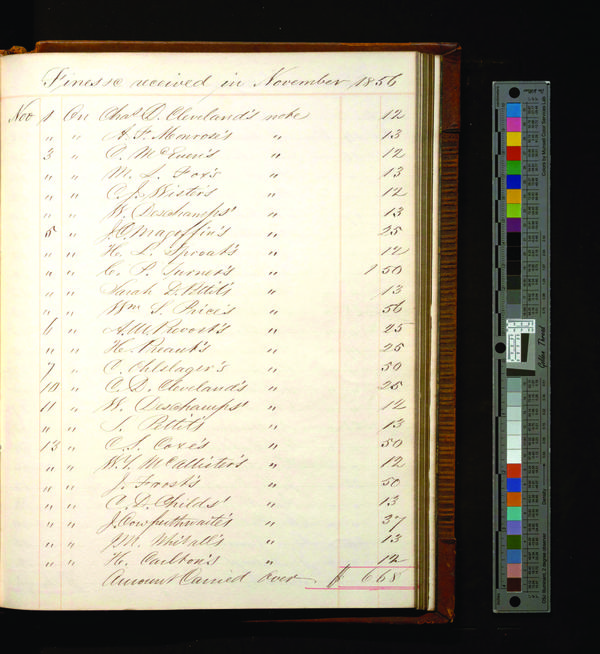 Fines &c received in November 1856
Nov 1 On Chas D. Cleveland's note 12
" " A. F. Monrose's " 13
3 " C. McEuen's " 12
" " M. L. Fox's " 13
" " C. J. Wister's " 12
" " W. Deschamps' " 13
5 " J. Magoffin's " 25
" " H. L. Sproat's " 12
" " C. P. Turner's " 1 50
" " Sarah L. Pettit's 13
" " Wm S. Price's " 56
6 " A. M. Prevost's " 25
" " H. " 25
7 " C. Ohlslager's " 50
10 " C. D. Cleveland's " 25
11 " W. Deschamps' " 12
" " S. Pettit's " 13
13 " C. S. Coxe's " 50
" " W. Y. McAllister's " 12
" " J. Frost's " 50
" " C. L. Childs' " 13
" " J. Cowperthwaite's " 37
" " J. M. Whitall's " 13
" " H. Carlton's " 12
Amount Carried Over $ 6 68